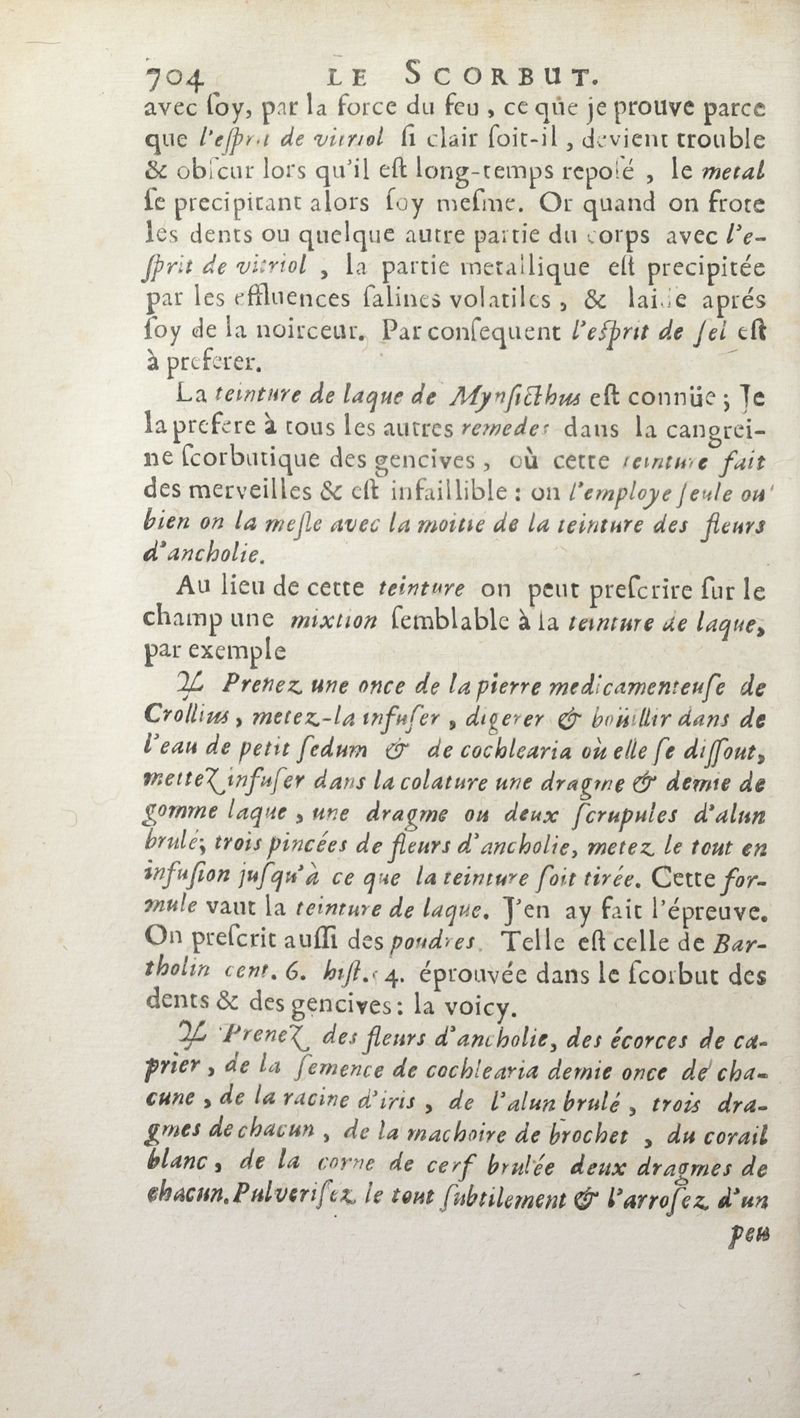 704 LE SCORBUT.
avec ſoy, par la force du feu , ce que je prouve parce
que l'eſprit de vitriol ſi clair ſoit-il , devient trouble
& obſcur lors qu'il eſt long-temps repoſé , le metal
ſe precipitant alors ſoy meſme. Or quand on frote
les dents ou quelque autre partie du corps avec l'e-
ſprit de vitriol , la partie metallique eſt precipitée
par les effluences ſalines volatiles , & laiſſe aprés
ſoy de la noirceur. Par conſequent l'eſprit de ſel eſt
à preferer.
La teinture de laque de Mynſicthus eſt connüe ; Je
la prefere à tous les autres remedes dans la cangrei-
ne ſcorbutique des gencives , où cette teinture fait
des merveilles & eſt infaillible : on l'employe ſeule ou
bien on la meſle avec la moitie de la teinture des fleurs
d'ancholie.
Au lieu de cette teinture on peut preſcrire ſur le
champ une mixtion ſemblable à la teinture de laque,
par exemple
♃ Prenez une once de la pierre medicamenteuſe de
Crollius , metez-la infuſer , digerer & boüillir dans de
l'eau de petit ſedum & de cochlearia où elle ſe diſſout,
mettez infuſer dans la colature une dragme & demie de
gomme laque , une dragme ou deux ſcrupules d'alun
brulé; trois pincées de fleurs d'ancholie, metez le tout en
infuſion juſqu'à ce que la teinture ſoit tirée. Cette for-
mule vaut la teinture de laque. J'en ay fait l'épreuve.
On preſcrit auſſi des poudres. Telle eſt celle de Bar-
tholin cent. 6. hiſt. 4. éprouvée dans le ſcorbut des
dents & des gencives : la voicy.
♃ Prenez des fleurs d'ancholie, des écorces de ca-
prier , de la ſemence de cochlearia demie once de cha-
cune , de la racine d'iris , de l'alun brulé , trois dra-
gmes de chacun , de la machoire de brochet , du corail
blanc , de la corne de cerf brulée deux dragmes de
chacun. Pulveriſez le tout ſubtilement & l'arroſez d'un
peu